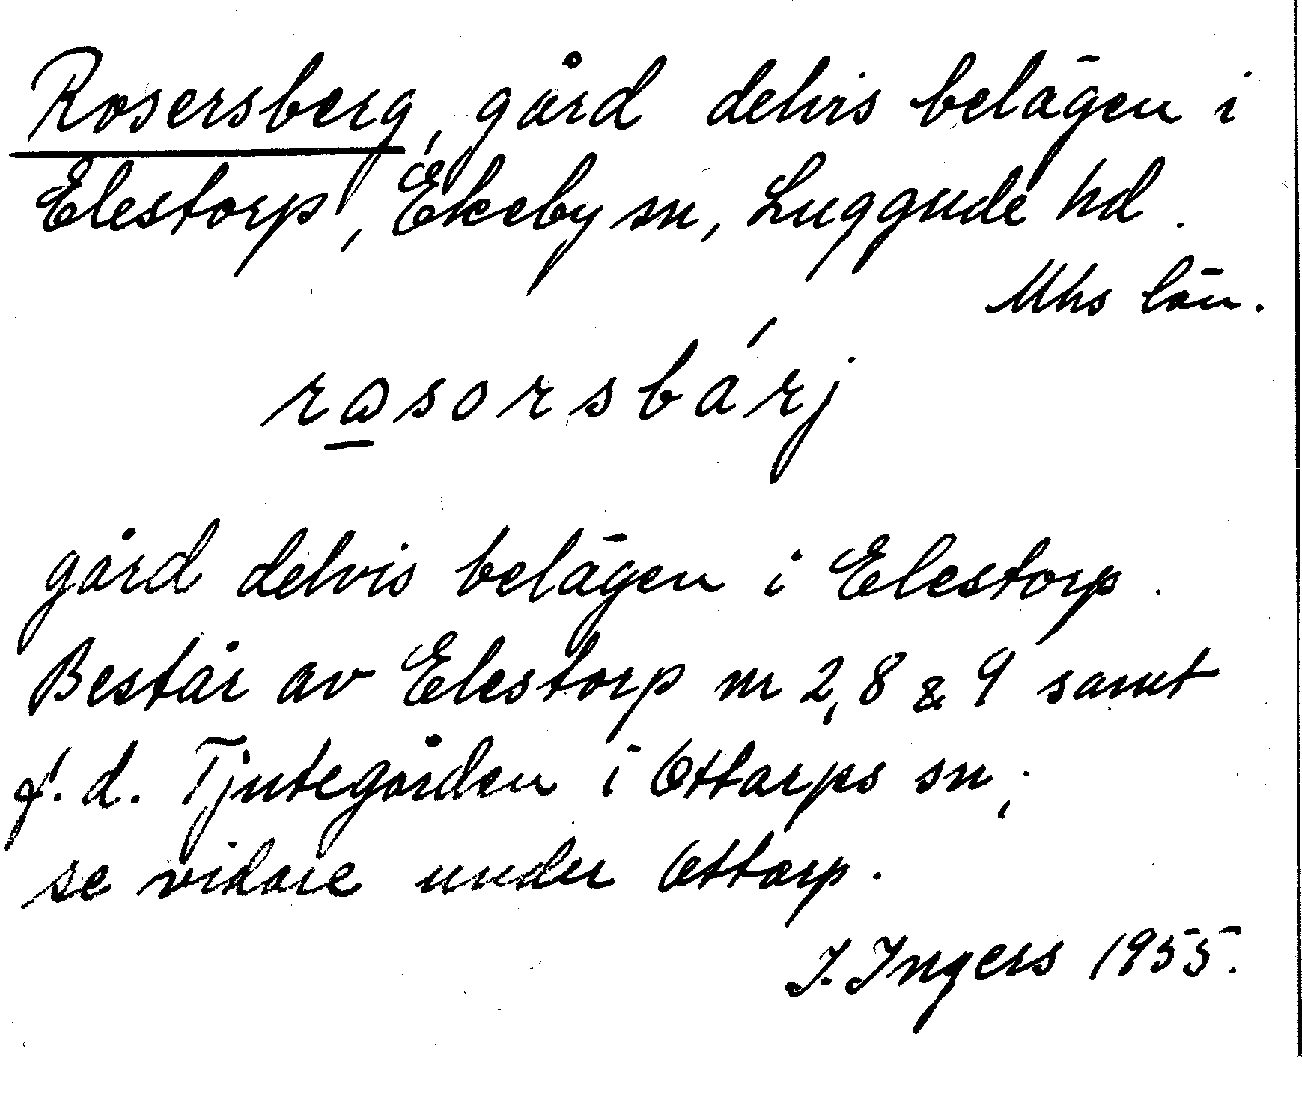 Rosersberg, gård delvis belägen i
Elestorp, Ekeby sn, Luggude hd.
Mhs län.
rasorsbárj
gård delvis belägen i Elestorp.
Består av Elestorp nr 2, 8 & 9 samt
f.d. Tjutegården i Ottarps sn;
se vidare under Ottarp.
I. Ingers 1955.